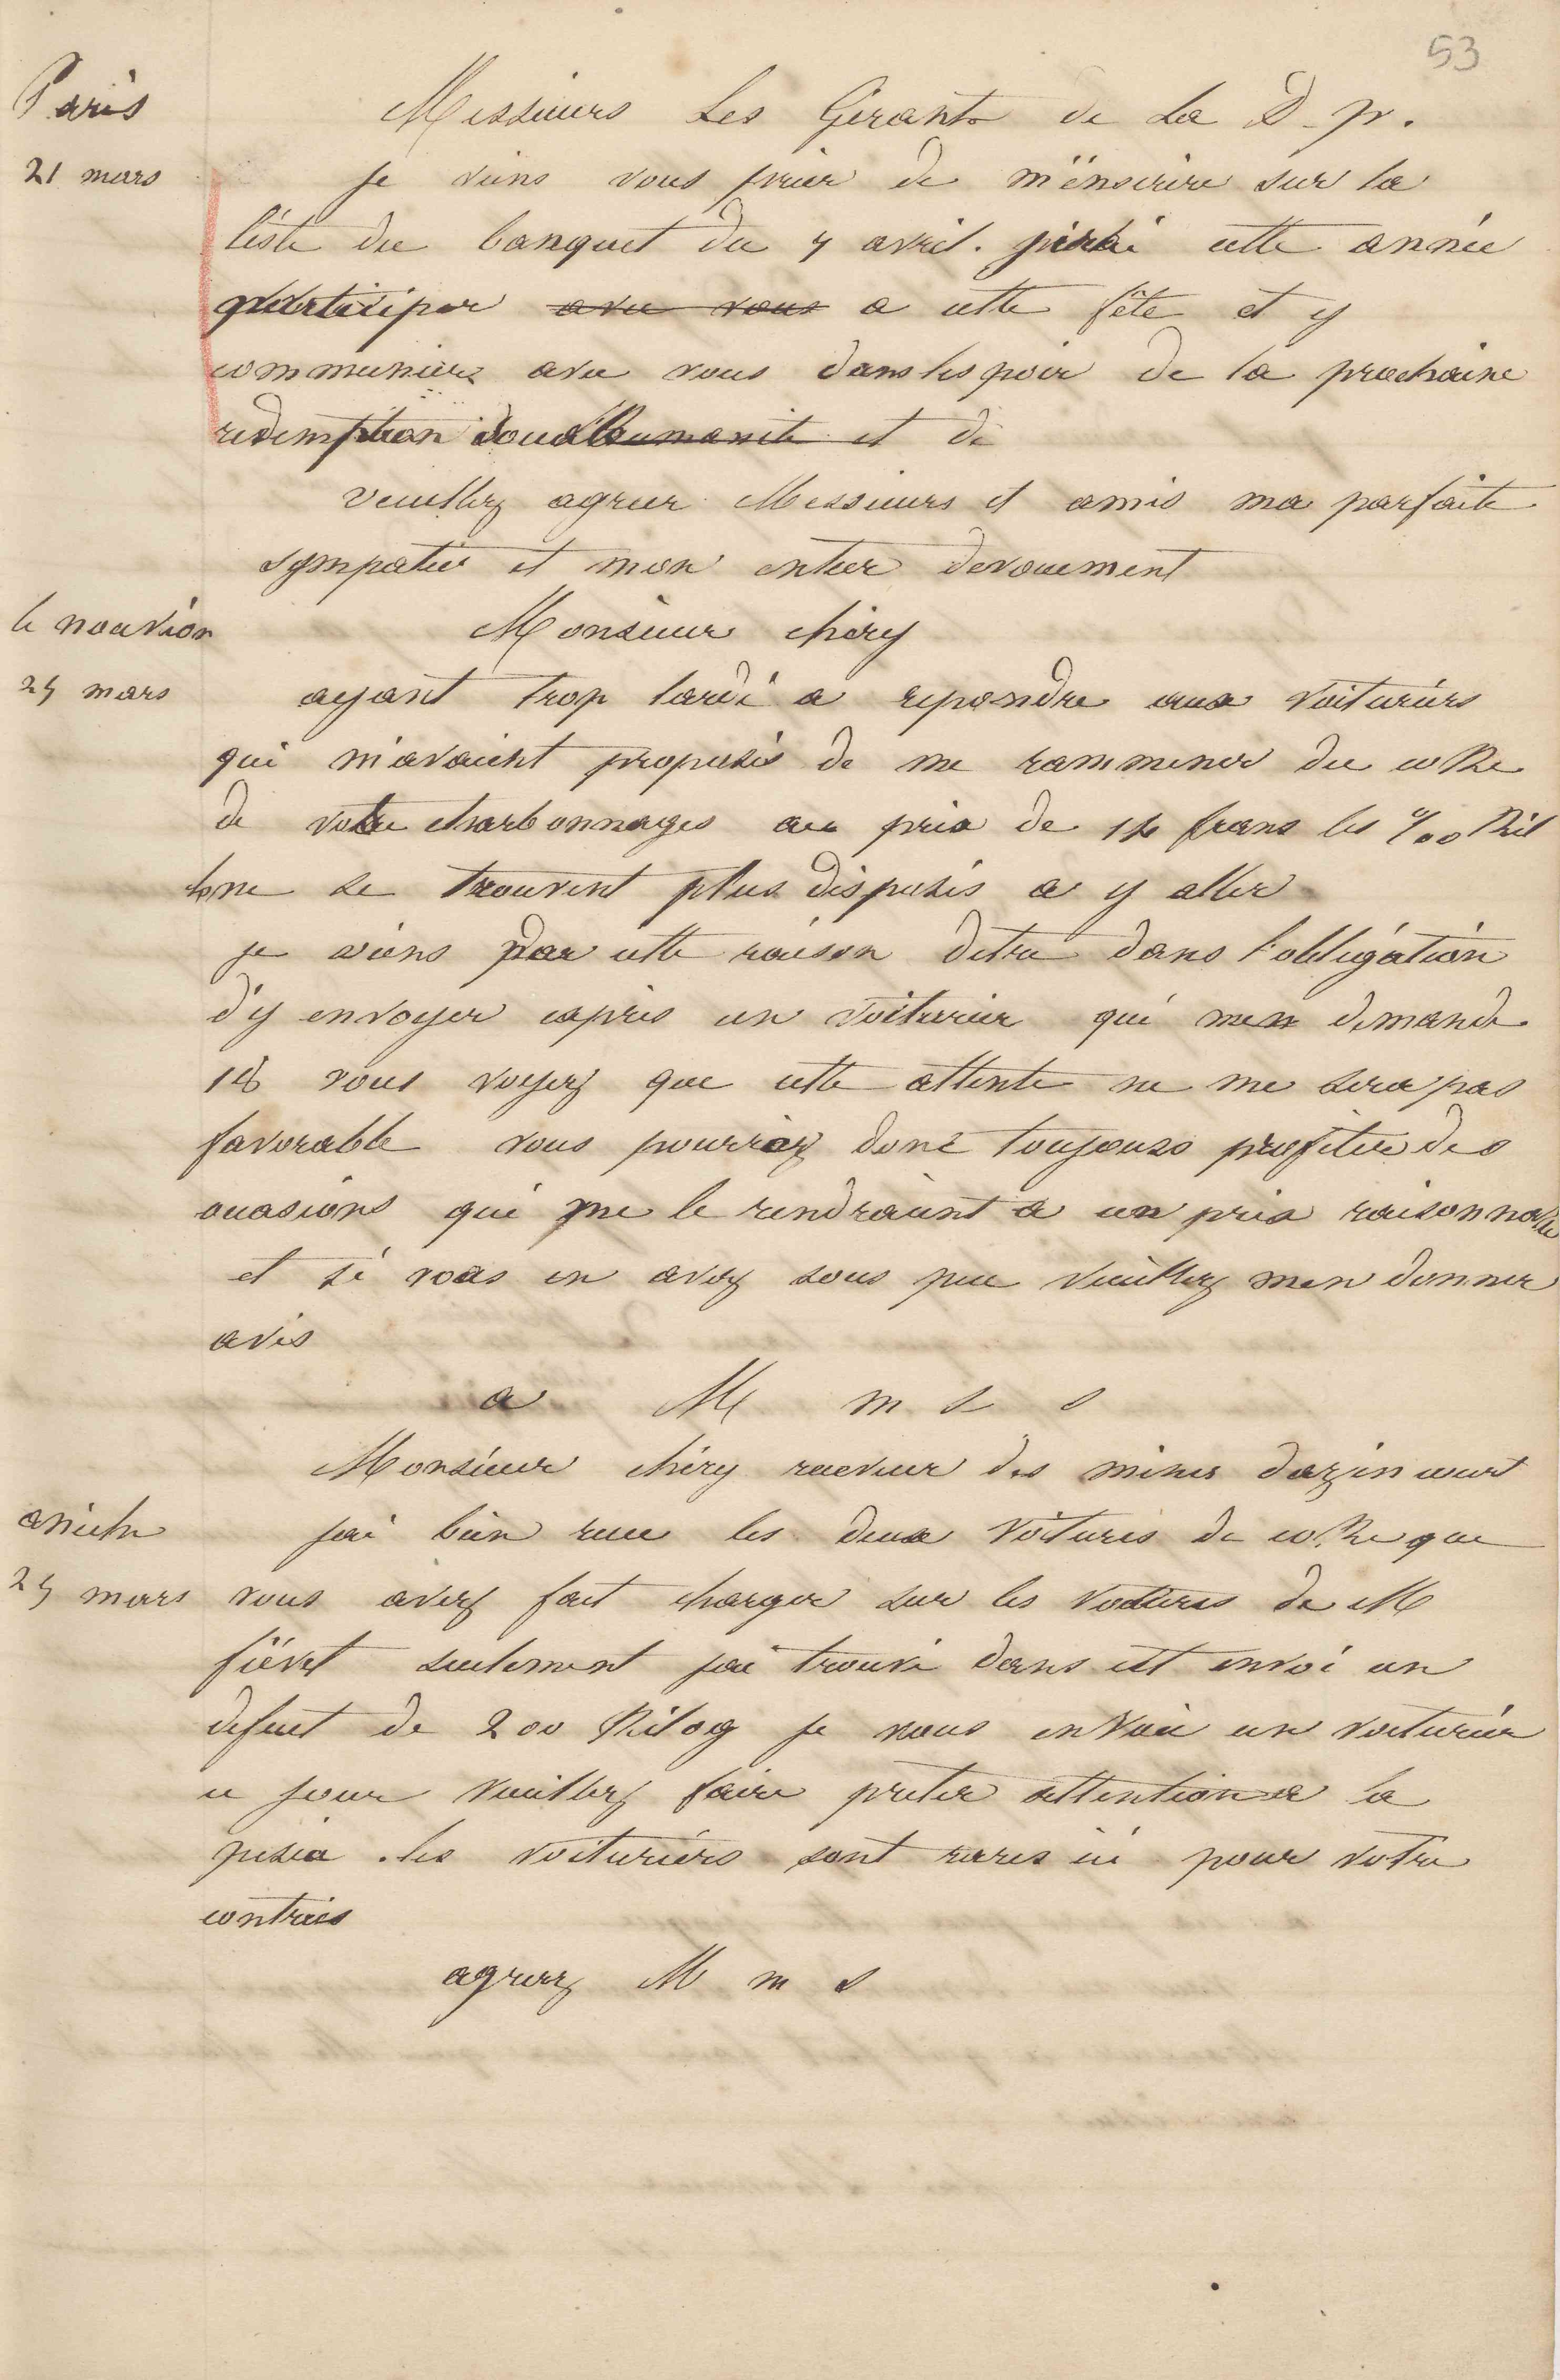 53
Paris
Messieurs Les Gerants de La D. p.
21 mars
je viens vous prier de m'enscrire sur la
liste du banquet du 7 avril. j'irai cette année
participer avec vous a cette fête et y
communier avec vous dans lespoir de la prochaine
redemption de
veuillez agreer Messieurs et amis ma parfaite
sympatie et mon entier devouement
le nouvion
Monsieur chéry
25 mars
ayant trop tardé a repondre aux voituriers
qui m'avaient proposés de me rammener du coke
de votre charbonnages au prix de 14 frans les %00 kil
ne se trouvent plus disposés a y aller
je viens par cette raison detre dans l'obligation
d'y envoyer expres un voiturier qui men demande
18 vous voyez que cette attente ne me sera pas
favorable vous pourriez donc toujours profiter des
ocasions qui me le rendraient a un prix raisonnable
et si vous en avez sous peu veuillez men donner
avis
a M m s s
Monsieur chéry receveur des mines dazincourt
aniche
jai bien recu les deux voitures de coke que
25 mars
vous avez fait charger sur les voitures de M
fiévet seulement jai trouvé dans cet envoi un
defiet de 200 kilog je vous envoie un voiturier
ce jour veuillez faire preter attention a la
pesea . les voituriers sont rares ici pour votre
contrées
agreez M m s